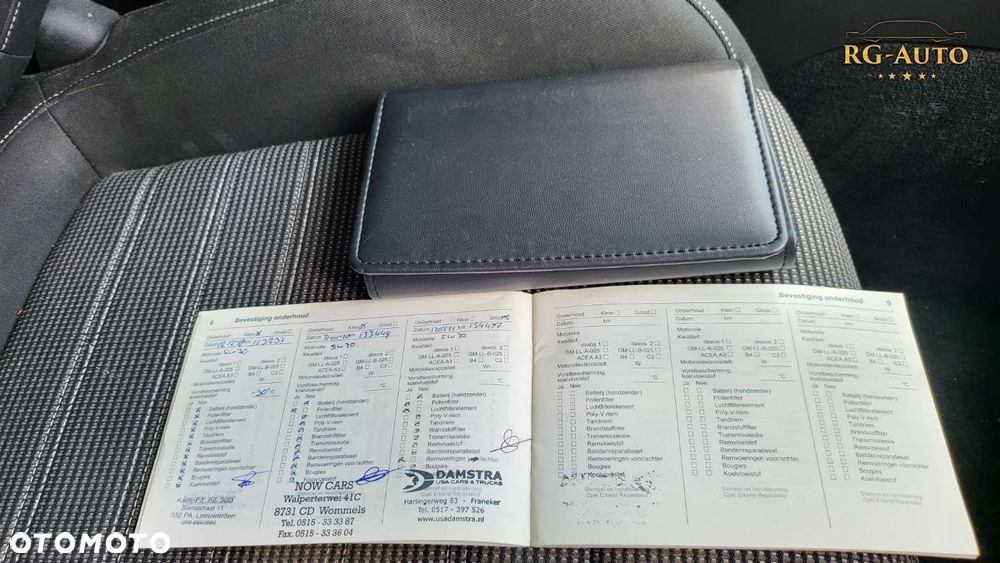 RG-AUTO
8 Bevestiging onderhoud
Klein Groot
Datum 113232
Motorolie 5W30
Kwaliteit
dexos 1 dexos 2
GM-LL-A-025 GM-LL-B-025
ACEA A3 B4 C3
Motorolieviscositeit: W-
Vorstbescherming, koelvloeistof -30°C
Ja Nee
Batterij (handzender)
Pollenfilter
Luchtfilterelement
Poly-V-riem
Tandriem
Brandstoffilter
Transmissieolie
Remvloeistof
Bandenreparatieset
Remvoeringen voor/achter
Bougies
Koelvloeistof
Leeuwarden
Onderhoud : Klein Groot
Datum km 133449
Motorolie 5W30
Kwaliteit
dexos 1 dexos 2
GM-LL-A-025 GM-LL-B-025
ACEA A3 B4 C3
Motorolieviscositeit: W-
Vorstbescherming, koelvloeistof °C
Ja Nee
Batterij (handzender)
Pollenfilter
Luchtfilterelement
Poly-V-riem
Tandriem
Brandstoffilter
Transmissieolie
Remvloeistof
Bandenreparatieset
Remvoeringen voor/achter
Bougies
Koelvloeistof
NOW CARS
Walperterwei 41C
8731 CD Wommels
Tel. 0515 - 33 33 87
Fax. 0515 - 33 36 04
Onderhoud : Klein Groot
Datum km 154472
Motorolie 5W30
Kwaliteit
dexos 1 dexos 2
GM-LL-A-025 GM-LL-B-025
ACEA A3 B4 C3
Motorolieviscositeit: W-
Vorstbescherming, koelvloeistof °C
Ja Nee
Batterij (handzender)
Pollenfilter
Luchtfilterelement
Poly-V-riem
Tandriem
Brandstoffilter
Transmissieolie
Remvloeistof
Bandenreparatieset
Remvoeringen voor/achter
Bougies
Koelvloeistof
DAMSTRA
USA CARS & TRUCKS
Opel Erkend Reparateur
Harlingerweg 83 - Franeker
Tel. 0517 - 397 526
www.usadamstra.nl
Bevestiging onderhoud 9
Onderhoud : Klein Groot
Datum km
Motorolie
Kwaliteit
dexos 1 dexos 2
GM-LL-A-025 GM-LL-B-025
ACEA A3 B4 C3
Motorolieviscositeit: W-
Vorstbescherming, koelvloeistof °C
Ja Nee
Batterij (handzender)
Pollenfilter
Luchtfilterelement
Poly-V-riem
Tandriem
Brandstoffilter
Transmissieolie
Remvloeistof
Bandenreparatieset
Remvoeringen voor/achter
Bougies
Koelvloeistof
Onderhoud : Klein Groot
Datum km
Motorolie
Kwaliteit
dexos 1 dexos 2
GM-LL-A-025 GM-LL-B-025
ACEA A3 B4 C3
Motorolieviscositeit: W-
Vorstbescherming, koelvloeistof °C
Ja Nee
Batterij (handzender)
Pollenfilter
Luchtfilterelement
Poly-V-riem
Tandriem
Brandstoffilter
Transmissieolie
Remvloeistof
Bandenreparatieset
Remvoeringen voor/achter
Bougies
Koelvloeistof
Stempel en handtekening
Opel Erkend Reparateur
Onderhoud : Klein Groot
Datum km
Motorolie
Kwaliteit
dexos 1 dexos 2
GM-LL-A-025 GM-LL-B-025
ACEA A3 B4 C3
Motorolieviscositeit: W-
Vorstbescherming, koelvloeistof °C
Ja Nee
Batterij (handzender)
Pollenfilter
Luchtfilterelement
Poly-V-riem
Tandriem
Brandstoffilter
Transmissieolie
Remvloeistof
Bandenreparatieset
Remvoeringen voor/achter
Bougies
Koelvloeistof
Stempel en handtekening
Opel Erkend Reparateur
OTOMOTO